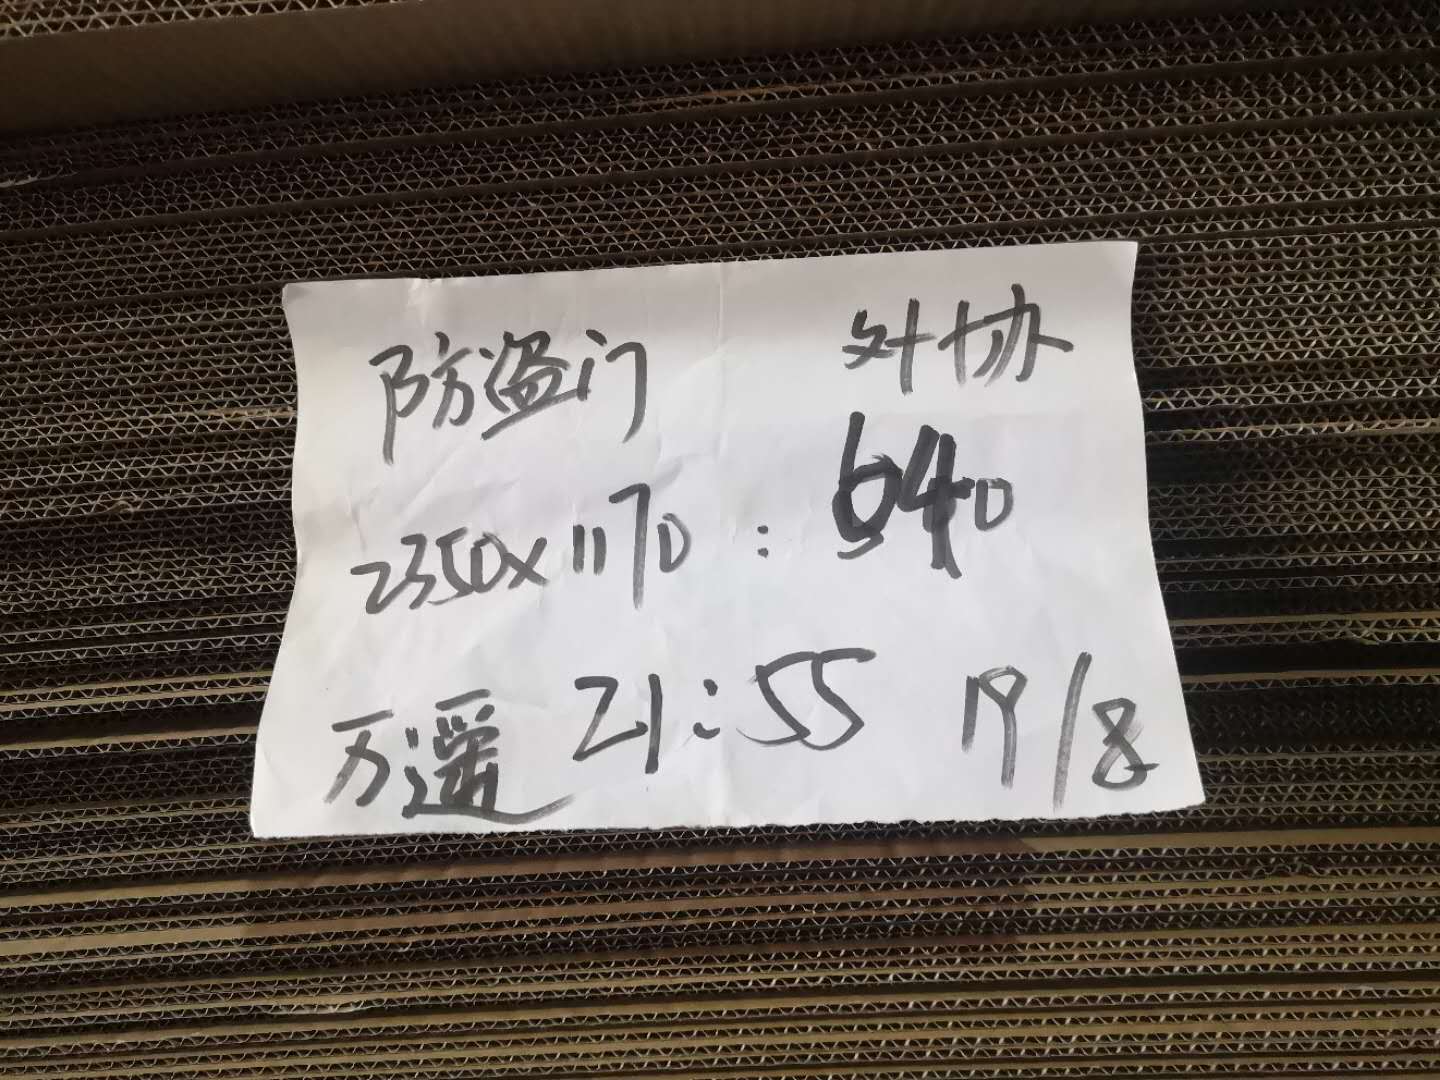 防盗门 外协
2350×1170 : 640
万遥 21:55 19/8